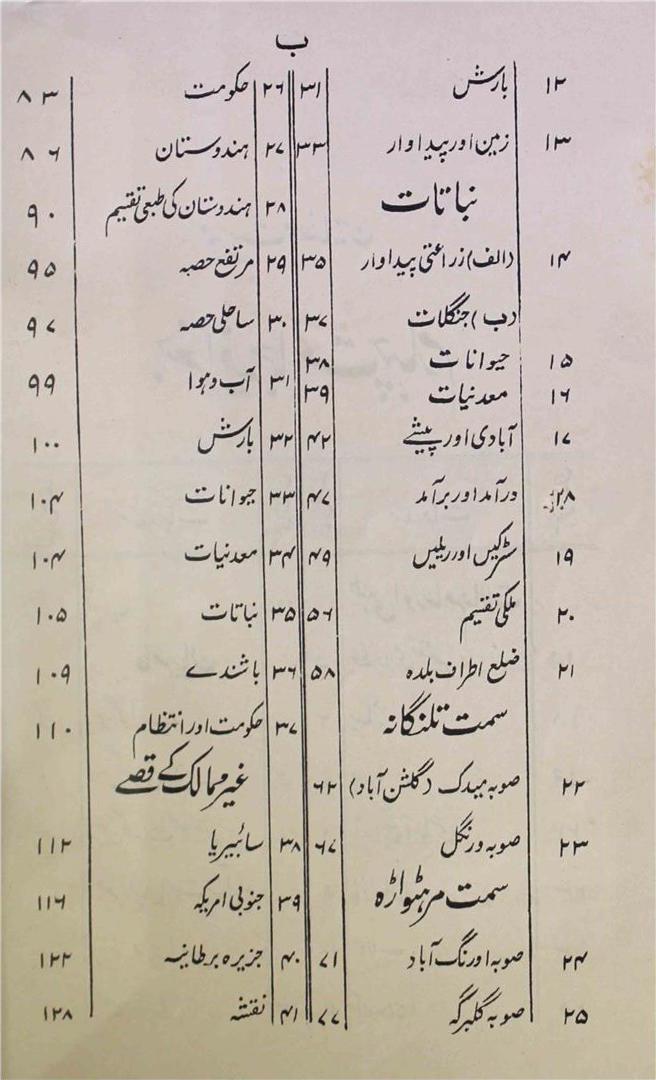 ب
۱۲ بارش ۳۱
۱۳ زمین اور پیداوار ۳۳
نباتات
۱۴ (الف) زراعتی پیداوار ۳۵
(ب) جنگلات ۳۷
۱۵ حیوانات ۳۸
۱۶ معدنیات ۳۹
۱۷ آبادی اور پیشے ۴۲
۱۸ درآمد اور برآمد ۴۷
۱۹ سڑکیں اور ریلیں ۴۹
۲۰ ملکی تقسیم ۵۶
۲۱ ضلع اطراف بلدہ ۵۸
سمت تلنگانہ
۲۲ صوبہ میدک (گلشن آباد) ۶۲
۲۳ صوبہ ورنگل ۶۷
سمت مرہٹواڑہ
۲۴ صوبہ اورنگ آباد ۷۱
۲۵ صوبہ گلبرگہ ۷۷
۲۶ حکومت ۸۳
۲۷ ہندوستان ۸۶
۲۸ ہندوستان کی طبعی تقسیم ۹۰
۲۹ مرتفع حصہ ۹۵
۳۰ ساحلی حصہ ۹۷
۳۱ آب و ہوا ۹۹
۳۲ بارش ۱۰۰
۳۳ حیوانات ۱۰۴
۳۴ معدنیات ۱۰۴
۳۵ نباتات ۱۰۵
۳۶ باشندے ۱۰۹
۳۷ حکومت اور انتظام ۱۱۰
غیر ممالک کے قصے
۳۸ سائبیریا ۱۱۲
۳۹ جنوبی امریکہ ۱۱۶
۴۰ جزیرہ برطانیہ ۱۲۲
۴۱ نقشہ ۱۲۸